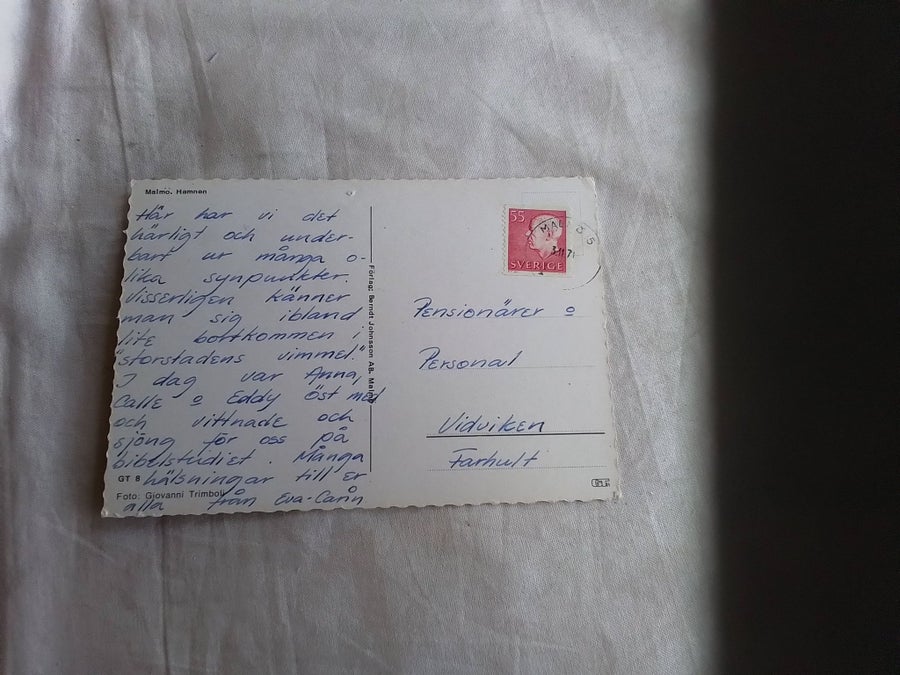 Malmö. Hamnen
Här har vi det
härligt och under-
bart ur många o-
lika synpunkter.
Visserligen känner
man sig ibland
lite bortkommen i
"storstadens vimmel."
I dag var Anna,
Calle o Eddy Öst med
och vittnade och
sjöng för oss på
bibelstudiet. Många
hälsningar till er
alla från Eva-Carin
GT 8
Foto: Giovanni Trimboli
Förlag: Berndt Johnsson AB. Malmö
55
SVERIGE
Pensionärer o
Personal
Vidviken
Farhult